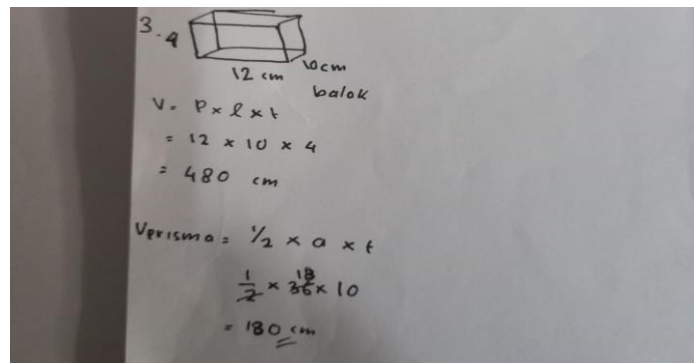 3.
4
12 cm
10cm
balok
V = P x l x t
= 12 x 10 x 4
= 480 cm
Vprisma = 1/2 x a x t
1/2 x 36 x 10
18
= 180 cm